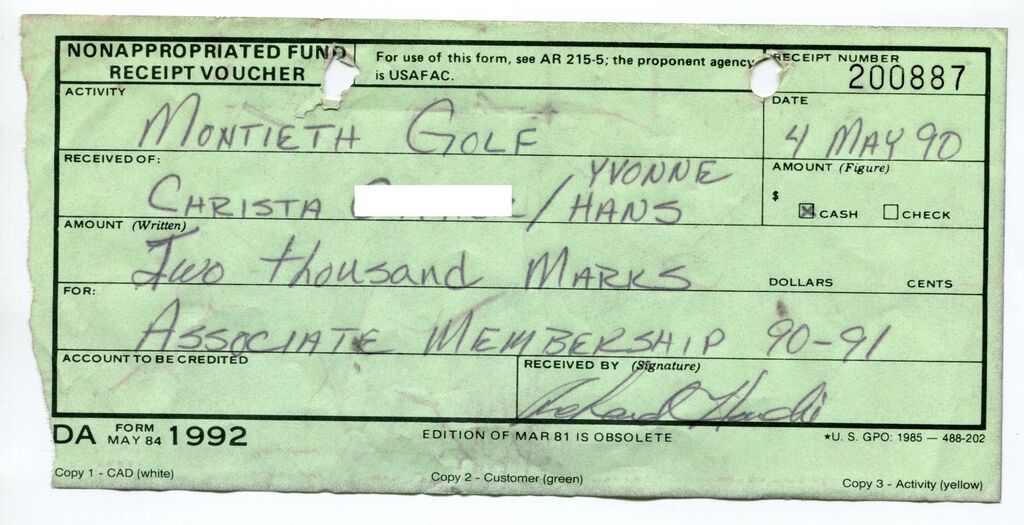 NONAPPROPRIATED FUND
RECEIPT VOUCHER
For use of this form, see AR 215-5; the proponent agency
is USAFAC.
RECEIPT NUMBER
200887
ACTIVITY
MONTIETH GOLF
DATE
4 MAY 90
RECEIVED OF:
CHRISTA / YVONNE
HANS
AMOUNT (Figure)
$
CASH CHECK
AMOUNT (Written)
Two thousand MARKS
DOLLARS CENTS
FOR:
ASSOCIATE MEMBERSHIP 90-91
ACCOUNT TO BE CREDITED
RECEIVED BY (Signature)
DA FORM
MAY 84 1992
EDITION OF MAR 81 IS OBSOLETE
★U. S. GPO: 1985 — 488-202
Copy 1 - CAD (white)
Copy 2 - Customer (green)
Copy 3 - Activity (yellow)